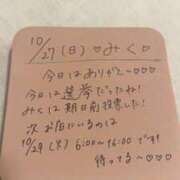 10/27(日)♡みく♡
今日はありがと〜♡♡♡
今日は選挙だったね!
みくは期日前投票した!
次お店にいるのは
10/29(火)6:00〜16:00です!
待ってる〜♡♡♡